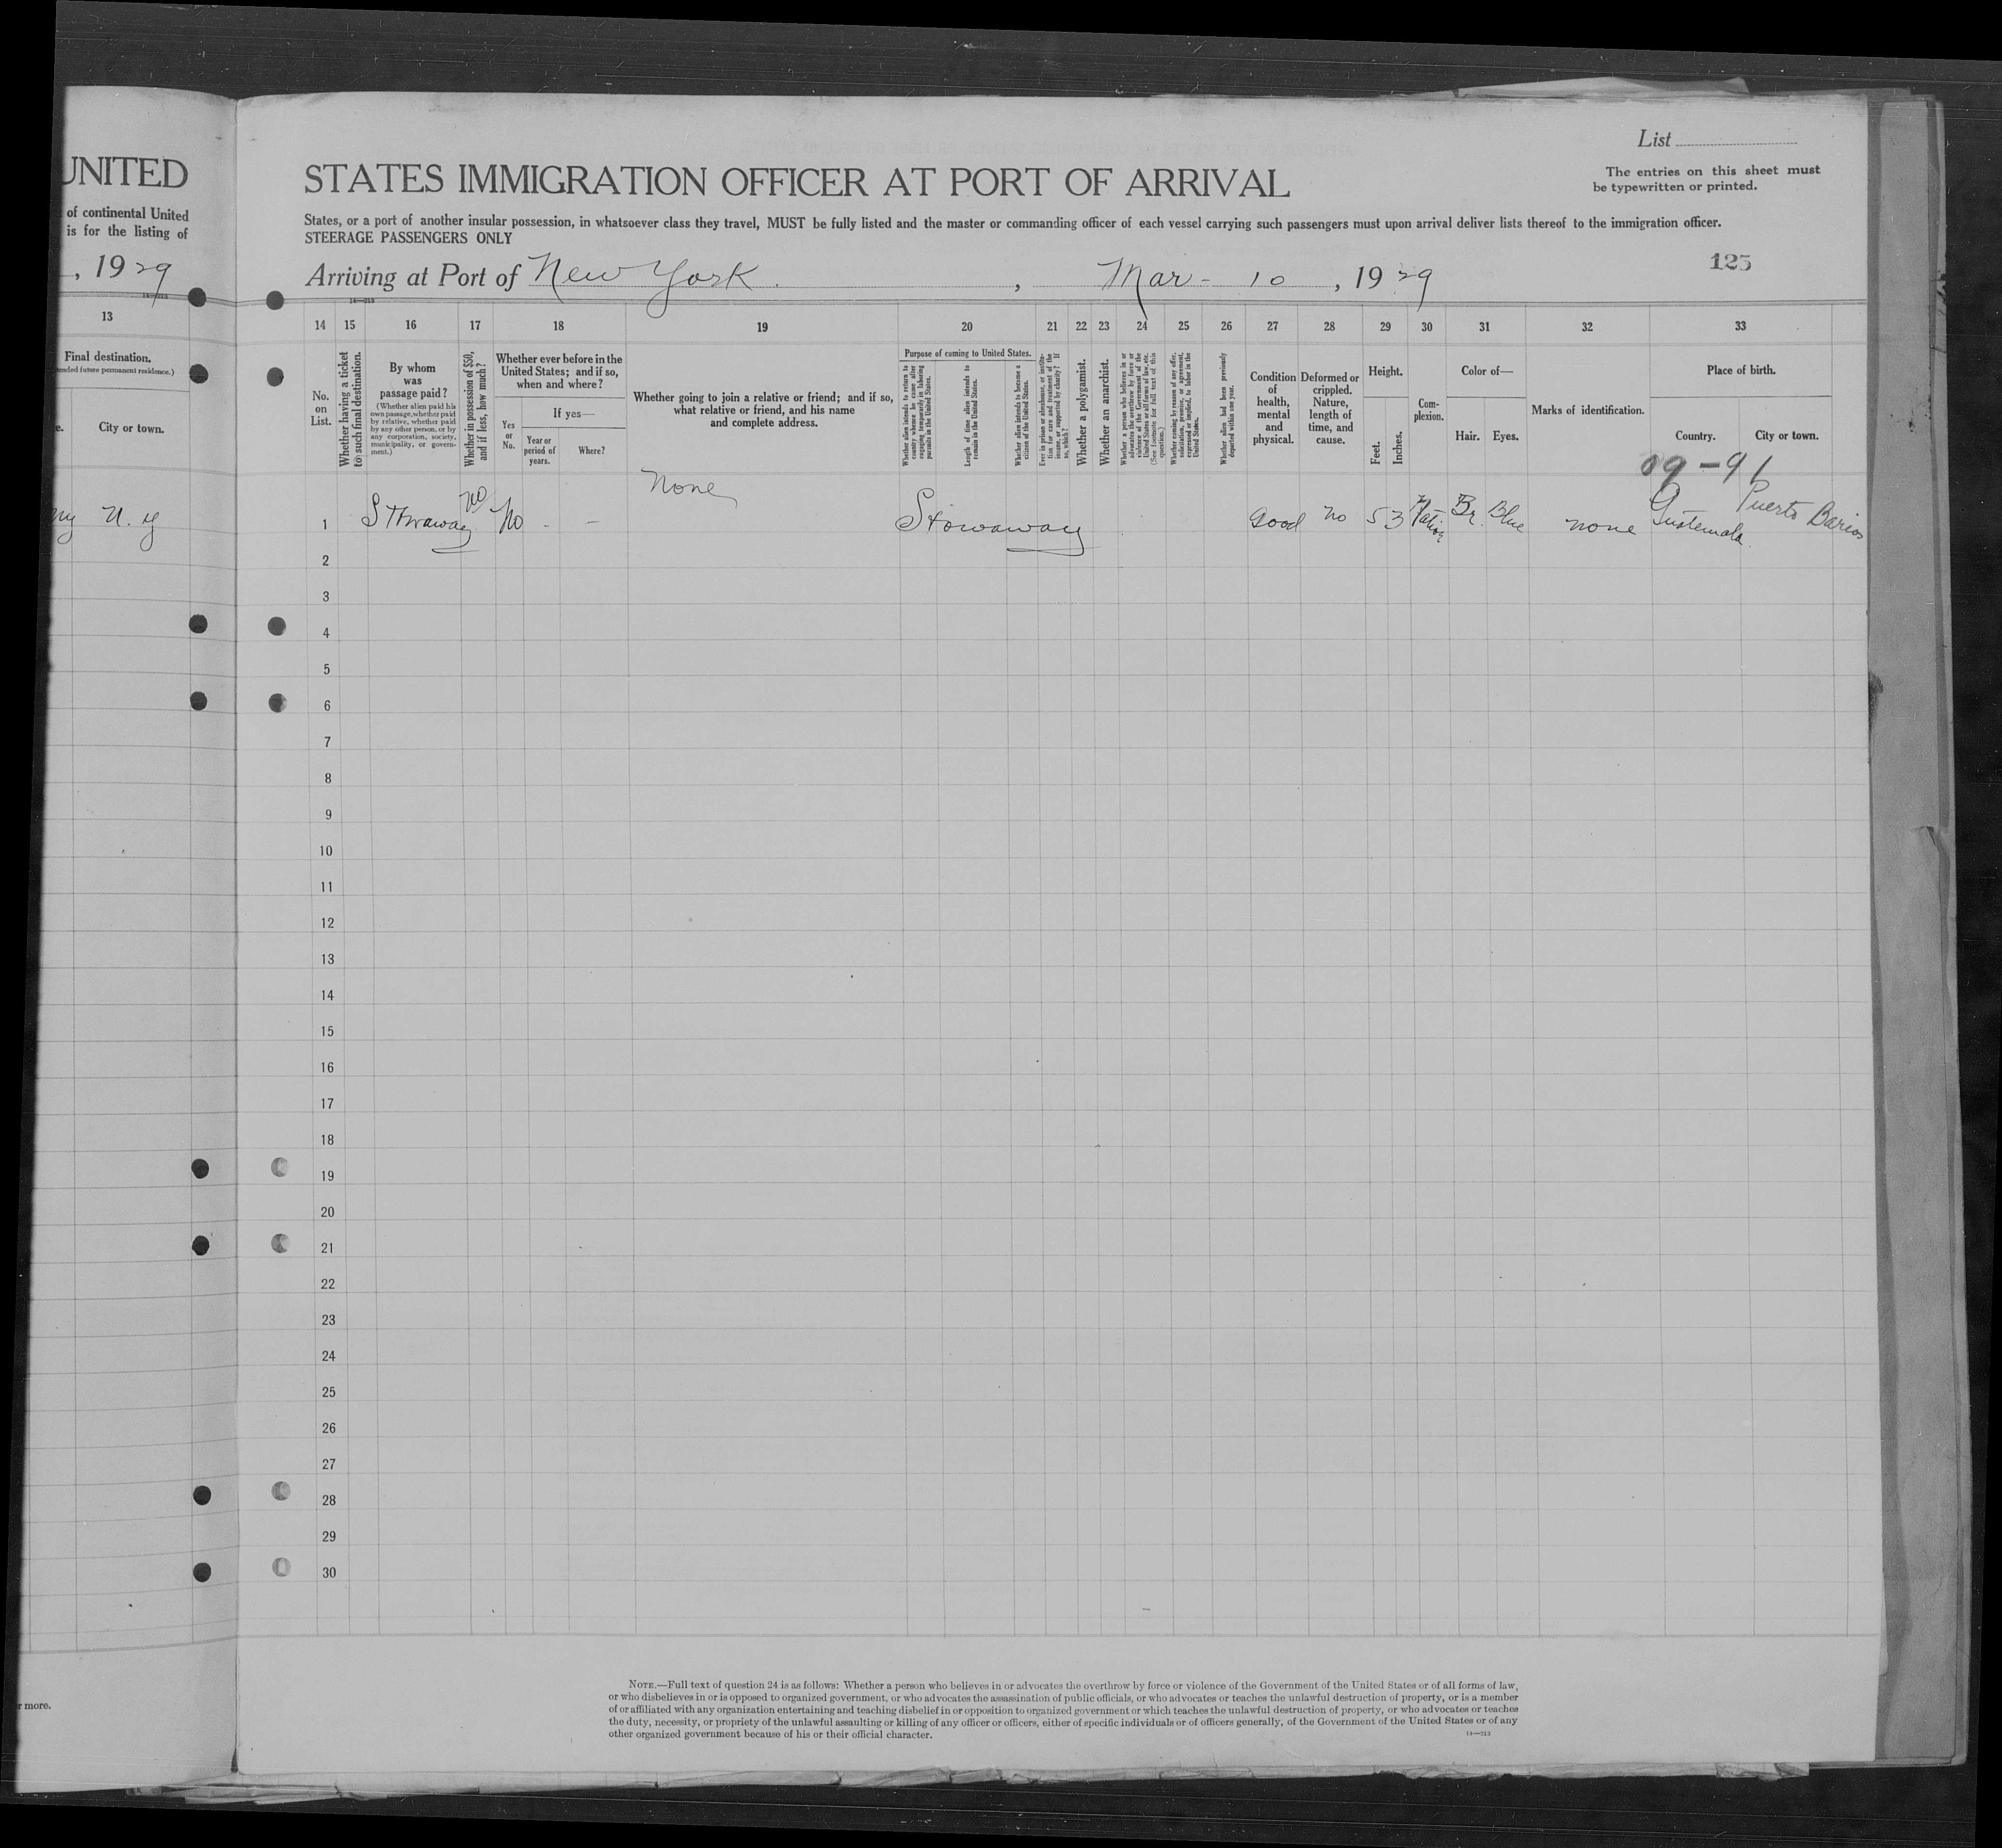 UNITED
of continental United
is for the listing of
, 1929
14—213
13
Final destination.
City or town.
N. Y
r more.
List
The entries on this sheet must
be typewritten or printed.
STATES IMMIGRATION OFFICER AT PORT OF ARRIVAL
States, or a port of another insular possession, in whatsoever class they travel, MUST be fully listed and the master or commanding officer of each vessel carrying such passengers must upon arrival deliver lists thereof to the immigration officer.
STEERAGE PASSENGERS ONLY
125
Arriving at Port of New York , Mar - 10 , 1929
14—213
14 15 16 17 18 19 20 21 22 23 24 25 26 27 28 29 30 31 32 33
No. on List.
Whether having a ticket to such final destination.
By whom was passage paid?
(Whether alien paid his own passage, whether paid by relative, whether paid by any other person, or by any corporation, society, municipality, or government.)
Whether in possession of $50, and if less, how much?
Whether ever before in the United States; and if so, when and where?
Yes or No.
If yes—
Year or period of years.
Where?
Whether going to join a relative or friend; and if so, what relative or friend, and his name and complete address.
Purpose of coming to United States.
Whether alien intends to return to country whence he came after engaging temporarily in laboring pursuits in the United States.
Length of time alien intends to remain in the United States.
Whether alien intends to become a citizen of the United States.
Ever in prison or almshouse, or institution for care and treatment of the insane, or supported by charity? If so, which?
Whether a polygamist.
Whether an anarchist.
Whether a person who believes in or advocates the overthrow by force or violence of the Government of the United States or all forms of law, etc. (See footnote for full text of this question.)
Whether coming by reason of any offer, solicitation, promise, or agreement, expressed or implied, to labor in the United States.
Whether alien had been previously deported within one year.
Condition of health, mental and physical.
Deformed or crippled. Nature, length of time, and cause.
Height.
Feet. Inches.
Complexion.
Color of—
Hair. Eyes.
Marks of identification.
Place of birth.
Country. City or town.
09-91
1 Stowaway no No - - none Stowaway Good no 5 3 Br. Blue none Guatemala Puerto Barios
2
3
4
5
6
7
8
9
10
11
12
13
14
15
16
17
18
19
20
21
22
23
24
25
26
27
28
29
30
NOTE.—Full text of question 24 is as follows: Whether a person who believes in or advocates the overthrow by force or violence of the Government of the United States or of all forms of law,
or who disbelieves in or is opposed to organized government, or who advocates the assassination of public officials, or who advocates or teaches the unlawful destruction of property, or is a member
of or affiliated with any organization entertaining and teaching disbelief in or opposition to organized government or which teaches the unlawful destruction of property, or who advocates or teaches
the duty, necessity, or propriety of the unlawful assaulting or killing of any officer or officers, either of specific individuals or of officers generally, of the Government of the United States or of any
other organized government because of his or their official character.
14—213